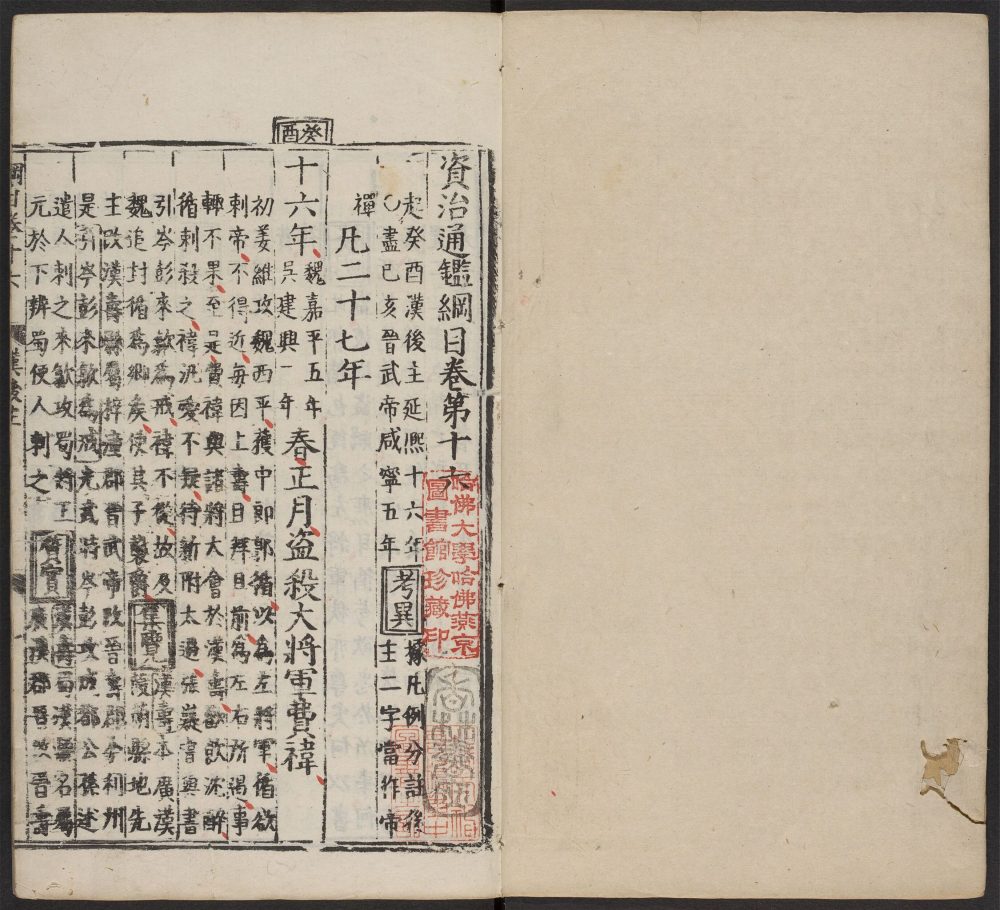 癸酉
資治通鑑綱目卷第十六
哈佛大學哈佛燕京
圖書館珍藏印
起癸酉漢後主延熙十六年考異據凡例分註後
〇盡已亥晉武帝咸寧五年主二字當作帝
禪 凡二十七年
十六年魏嘉平五年吳建興二年春正月盜殺大將軍費禕
初姜維攻魏西平獲中郎郭循以為左將軍循欲
刺帝不得近每因上壽且拜且前為左右所遏事
輒不果至是費禕與諸將大會於漢壽歡飲沈醉
循刺殺之禕汎愛不疑待新附太過張嶷嘗與書
引岑彭來歙為戒禕不從故及集覽漢壽本廣漢
魏追封循為鄉侯使其子襲爵葭萌縣地先
主改漢壽縣屬梓潼郡晉武帝改晉壽郡今利州
是引岑彭來歙為戒光武時岑彭攻成都公孫述
遣人刺之來歙攻蜀將王質實漢壽蜀漢縣名屬
元於下辨蜀使人刺之廣漢郡晉改晉壽
綱目卷十六 漢後主